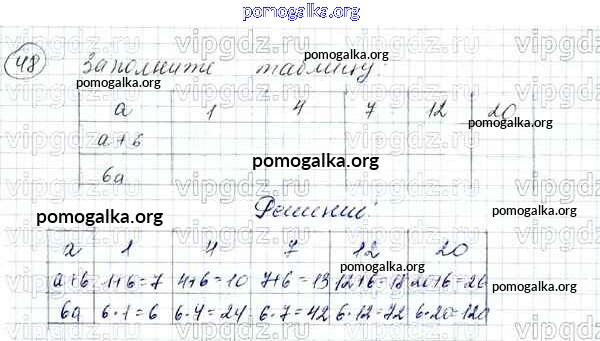 pomogalka.org
48 Заполните таблицу.
a 1 4 7 12 20
a+6
6a
Решение:
a 1 4 7 12 20
a+6 1+6=7 4+6=10 7+6=13 12+6=18 20+6=26
6a 6·1=6 6·4=24 6·7=42 6·12=72 6·20=120
pomogalka.org
pomogalka.org
pomogalka.org
pomogalka.org
pomogalka.org
pomogalka.org
pomogalka.org
vipgdz.ru
vipgdz.ru
vipgdz.ru